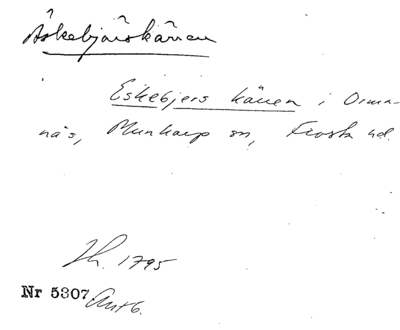 Äskebjärskärren
Eskebjers kärren i Orma-
näs, Munkarp sn, Frosta hd.
Th. 1795
Nr 5307